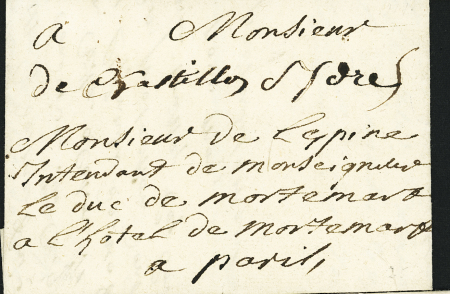 a Monsieur
de
Monsieur de Lepine
Intendant de monseigneur
Le duc de mortemart
a l'hotel de mortemart
a paris,